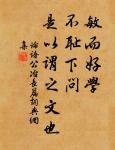 敏而好學
不恥下問
是以謂之文也
論語公冶長篇詞典網
集